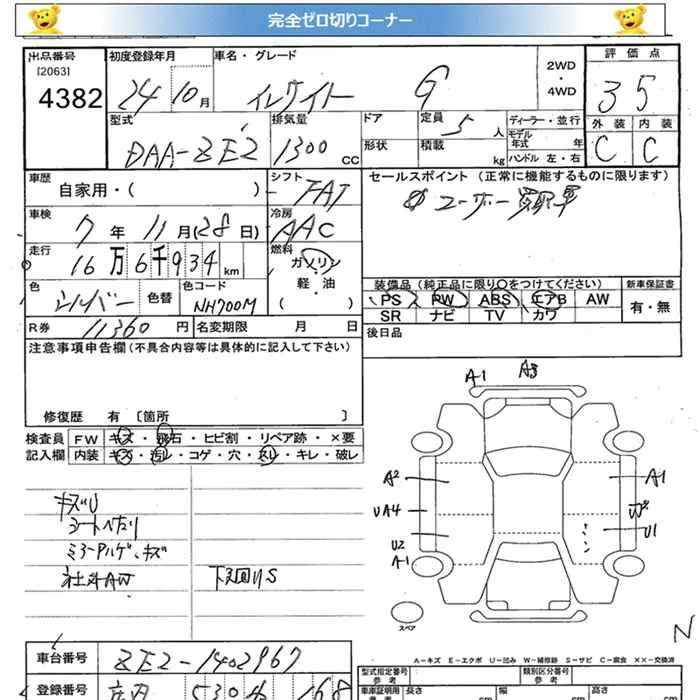 完全ゼロ切りコーナー
出品番号 初度登録年月 車名・グレード 2WD・4WD 評価点
[2063]
4382 24 10月 インサイト G 3 5
型式 排気量 ドア 定員 5人 ディーラー・並行 外装 内装
DAA-ZE2 1300cc 形状 積載 kg モデル年式 年 ハンドル 左・右 C C
車歴 シフト セールスポイント (正常に機能するものに限ります)
自家用・( ) FAT ユーザー買取車
車検 7年 11月(28日) 冷房 AAC
走行 16万6千934km 燃料 ガソリン
軽・油
( )
装備品(純正品に限り○をつけてください) 新車保証書
色 シルバー 色替 色コード NH700M PS PW ABS エアB AW 有・無
SR ナビ TV カワ
R券 11360円 名変期限 月 日 後日品
注意事項申告欄(不具合内容等は具体的に記入して下さい)
修復歴 有 [箇所 ]
検査員 FW キズ・飛石・ヒビ割・リペア跡・×要
記入欄 内装 キズ・汚レ・コゲ・穴・スレ・キレ・破レ
キズU
シートヘタリ
ミラーアルゲ、キズ
社外AW 下回りS
A1 A3
A2 A1
UA4 W2
U2 U1
A1
スペア
N
A-キズ E-エクボ U-凹み W-補修跡 S-サビ C-腐食 XX-交換済
車台番号 ZE2-1402967 型式指定番号 参考 類別区分番号 参考
登録番号 庄内 530 168 車庫証明用 参考 長さ cm 幅 cm 高さ cm